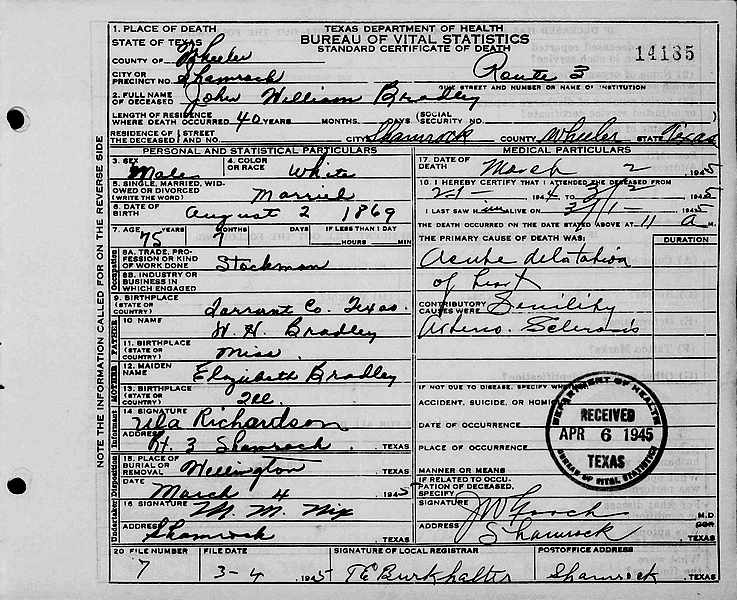 TEXAS DEPARTMENT OF HEALTH
BUREAU OF VITAL STATISTICS
STANDARD CERTIFICATE OF DEATH
14135
NOTE THE INFORMATION CALLED FOR ON THE REVERSE SIDE
1. PLACE OF DEATH
STATE OF TEXAS
COUNTY OF Wheeler
CITY OR PRECINCT NO. Shamrock Route 3
GIVE STREET AND NUMBER OR NAME OF INSTITUTION
2. FULL NAME OF DECEASED John William Bradley
LENGTH OF RESIDENCE WHERE DEATH OCCURRED 40 YEARS MONTHS DAYS (SOCIAL SECURITY NO.
RESIDENCE OF THE DECEASED STREET AND NO. CITY Shamrock COUNTY Wheeler STATE Texas
PERSONAL AND STATISTICAL PARTICULARS
3. SEX Male 4. COLOR OR RACE White
5. SINGLE, MARRIED, WIDOWED OR DIVORCED (WRITE THE WORD) Married
6. DATE OF BIRTH August 2 1869
7. AGE YEARS MONTHS DAYS IF LESS THAN 1 DAY
75 7 HOURS MIN
Occupation
8A. TRADE, PROFESSION OR KIND OF WORK DONE Stockman
8B. INDUSTRY OR BUSINESS IN WHICH ENGAGED
9. BIRTHPLACE (STATE OR COUNTRY) Tarrant Co. Texas.
FATHER
10. NAME W. H. Bradley
11. BIRTHPLACE (STATE OR COUNTRY) Miss.
MOTHER
12. MAIDEN NAME Elizabeth Bradley
13. BIRTHPLACE (STATE OR COUNTRY)
Informant
14 SIGNATURE Ula Richardson
ADDRESS Rt. 3 Shamrock , TEXAS
Disposition
15. PLACE OF BURIAL OR REMOVAL Wellington , TEXAS
DATE March 4 1945
Undertaker
16 SIGNATURE M. M. Nix
ADDRESS Shamrock , TEXAS
MEDICAL PARTICULARS
17. DATE OF DEATH March 2 1945
18. I HEREBY CERTIFY THAT I ATTENDED THE DECEASED FROM
2-1- 1944 TO 3/2- 1945
I LAST SAW him ALIVE ON 3/1- 1945
THE DEATH OCCURRED ON THE DATE STATED ABOVE AT 11 A M.
THE PRIMARY CAUSE OF DEATH WAS: DURATION
Acute delatation
of heart
CONTRIBUTORY CAUSES WERE Senility
Arterio. Sclerosis
IF NOT DUE TO DISEASE, SPECIFY WH
ACCIDENT, SUICIDE, OR HOMIC
DATE OF OCCURRENCE
PLACE OF OCCURRENCE
MANNER OR MEANS
IF RELATED TO OCCUPATION OF DECEASED, SPECIFY
SIGNATURE J W Gooch M.D.
ADDRESS Shamrock , TEXAS
DEPARTMENT OF HEALTH
RECEIVED
APR 6 1945
TEXAS
BUREAU OF VITAL STATISTICS
20 FILE NUMBER FILE DATE SIGNATURE OF LOCAL REGISTRAR POSTOFFICE ADDRESS
7 3-4 1945 T E Burkhalter Shamrock , TEXAS